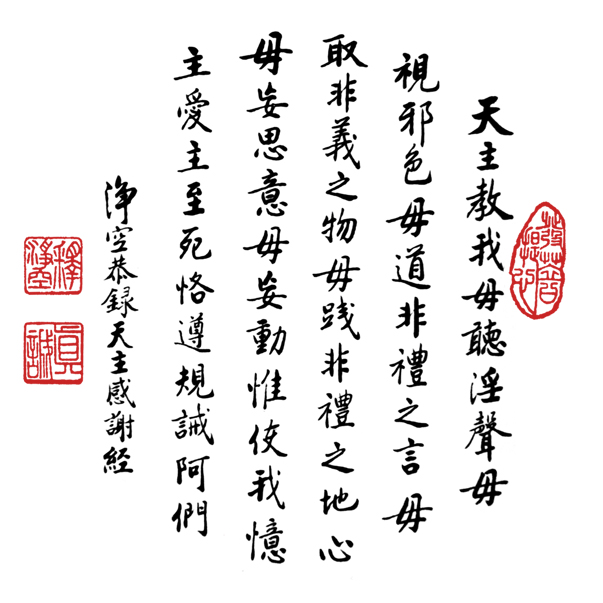 天主教我毋聽淫聲毋
視邪色毋道非禮之言毋
取非義之物毋踐非禮之地心
毋妄思意毋妄動惟使我憶
主愛主至死恪遵規誡阿們
淨空恭錄天主感謝経
釋淨空
真誠